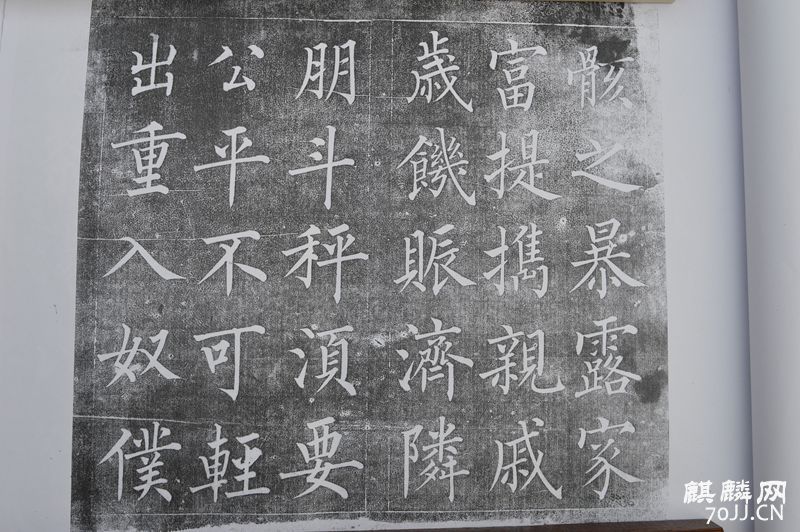 骸之暴露家
富提攜親戚
歲饑賑濟隣
朋斗秤湏要
公平不可輕
出重入奴僕
麒麟网
70JJ.CN